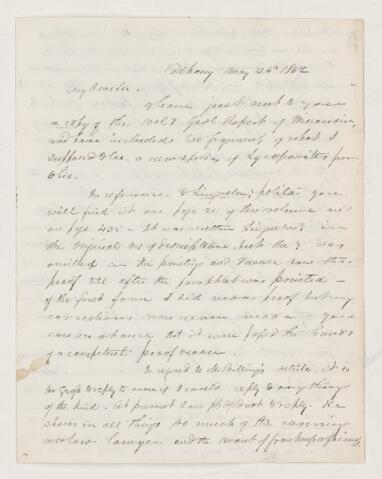 Albany May 26th 1862
My dear Sir.
I have just sent to you
a copy of the Vol 1 Geol. Report of Wisconsin,
and have included two fragments of what I
suppose to be a new species of Lycopodites from
Ohio.
In reference to Lingula polita you
will find it on page of this volume and
on page 435 - It was written in
the original of description, but the was
omitted in the printing and I never saw the
proof till after the pamphlet was printed -
of the first form I had made proof but my
corrections was never made - you
can see at once that it never passed the hands
of a competent proof reader.
In regard to Mr Billings article, it is
to reply to even if I could reply to any thing
of the kind. At present I am to reply. He
shows in all things so much of the cunning
lawyer and the want of frankness